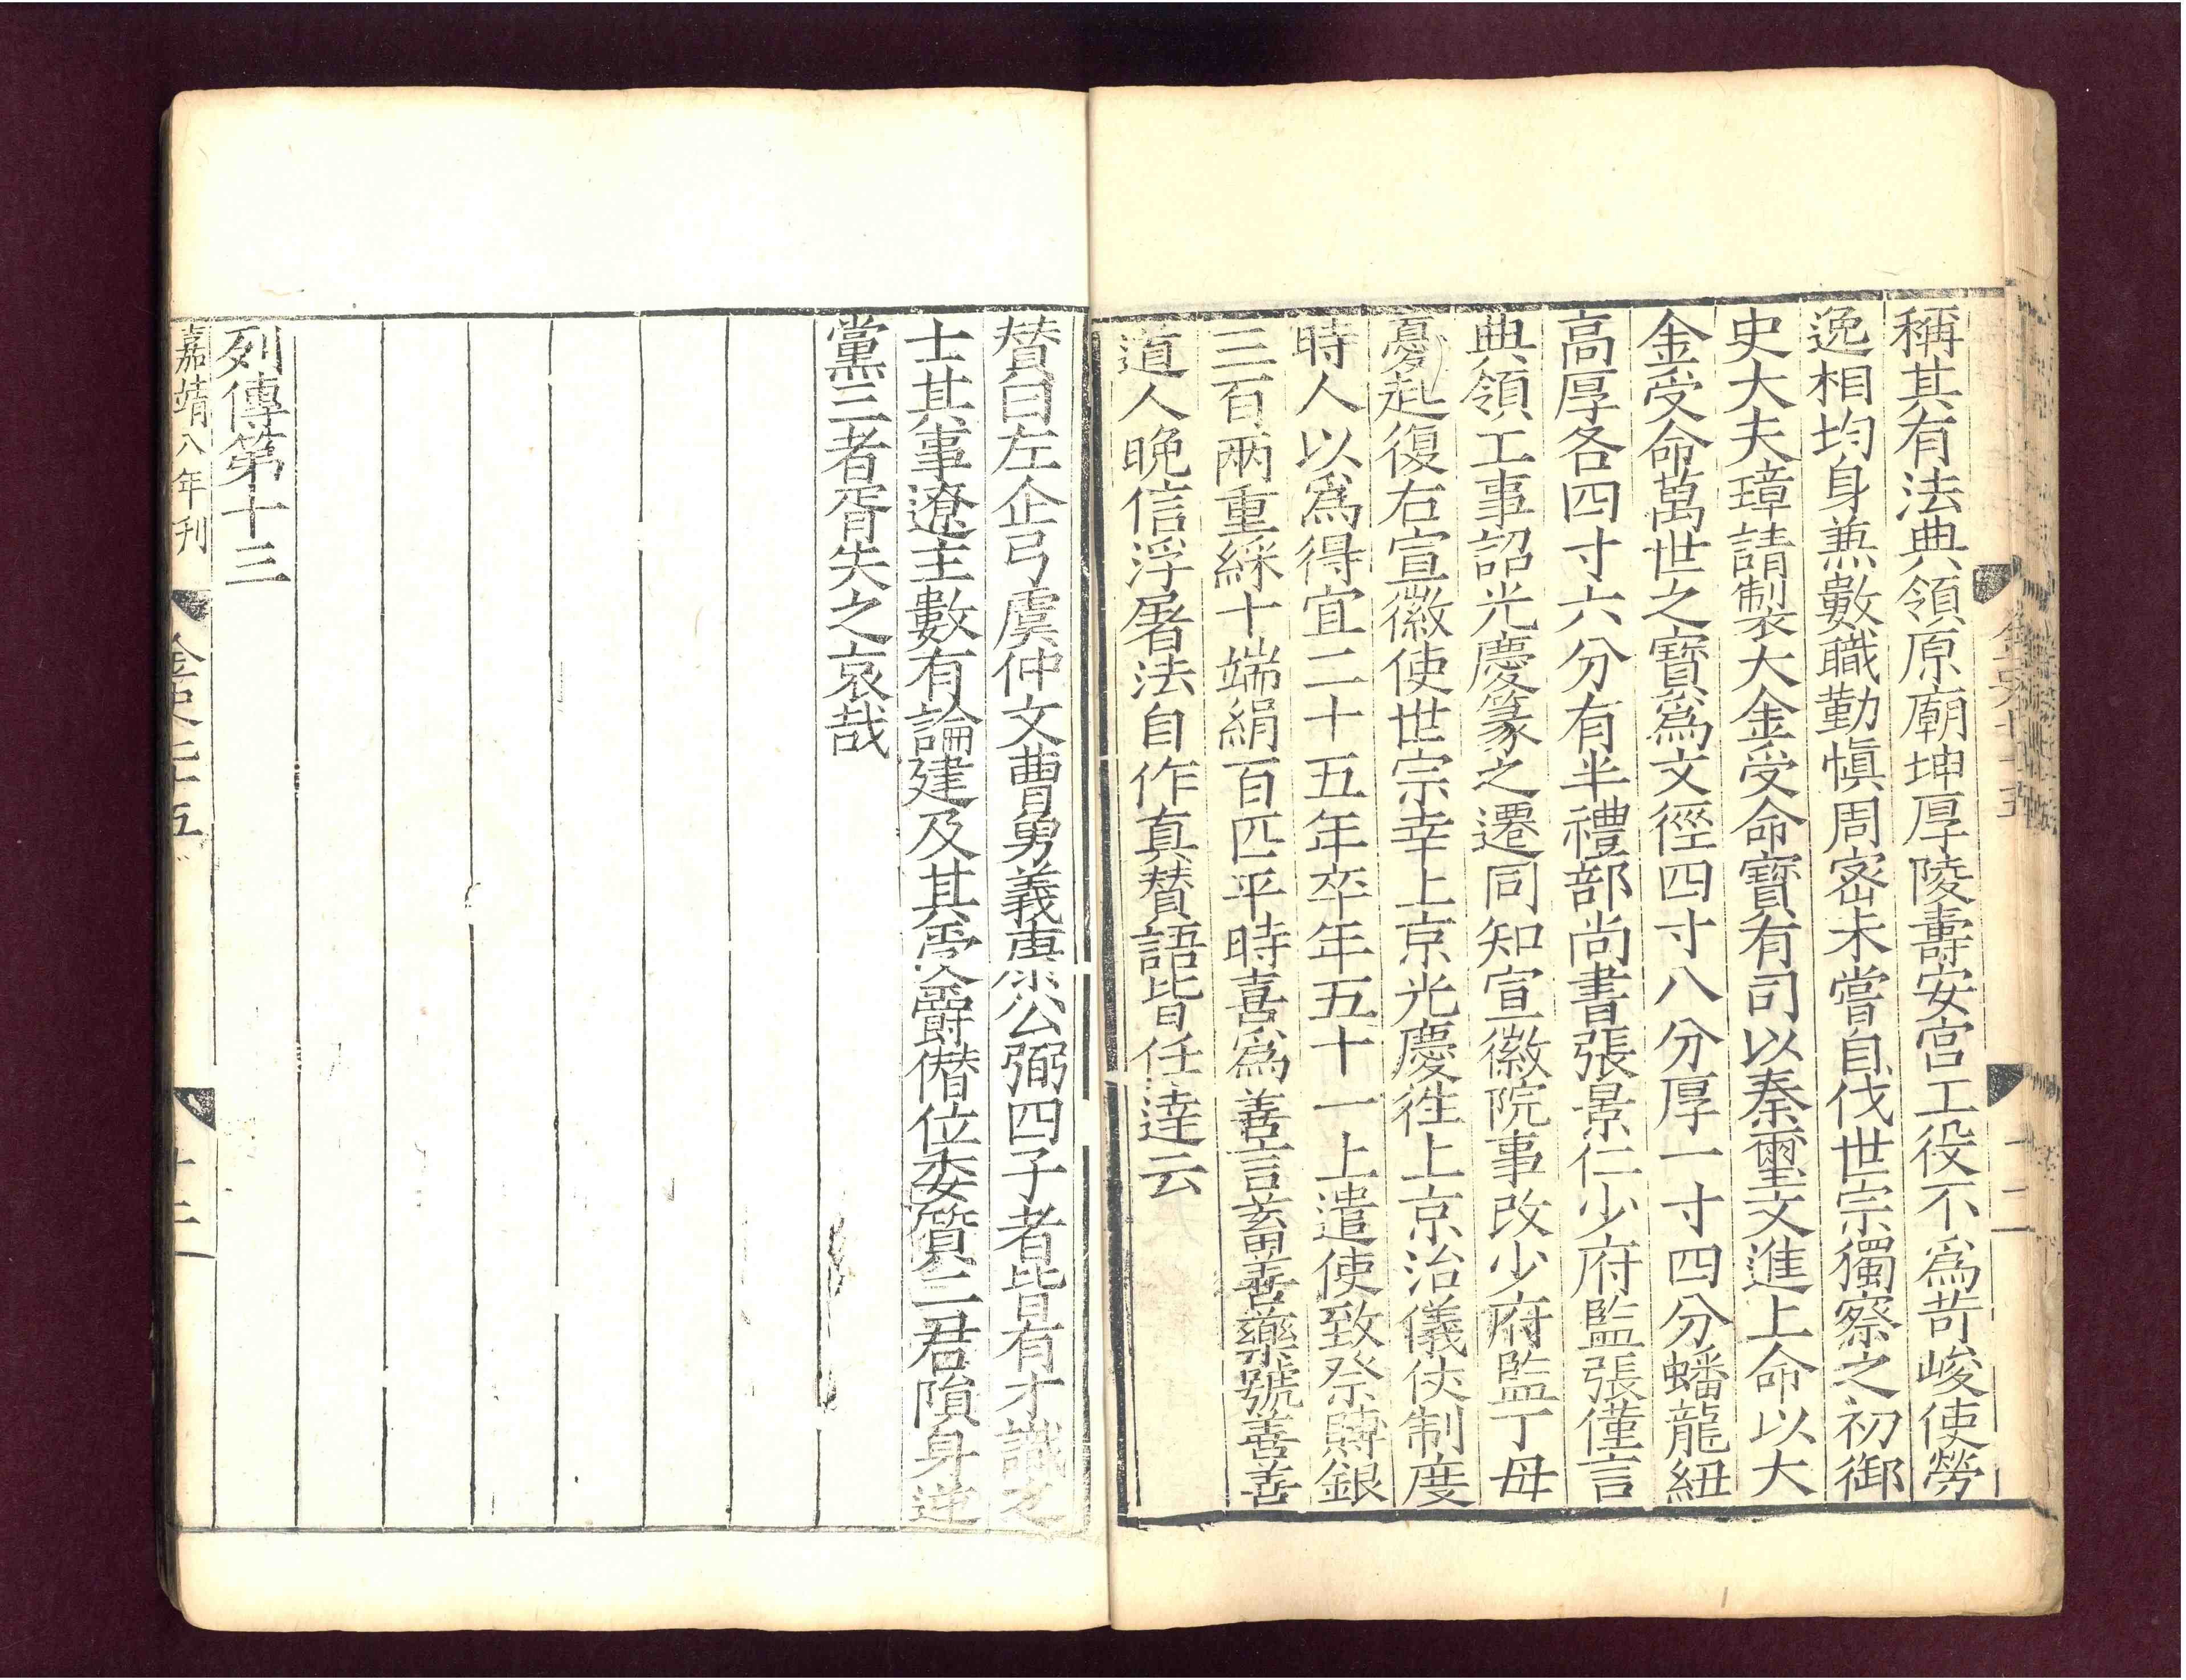 稱其有法典領原廟坤厚陵壽安宮工役不爲苛峻使勞
逸相均身兼數職勤慎周密未嘗自伐世宗獨察之初御
史大夫璋請製大金受命寶有司以秦璽文進上命以大
金受命萬世之寶爲文徑四寸八分厚一寸四分蟠龍紐
高厚各四寸六分有半禮部尚書張景仁少府監張僅言
典領工事詔光慶篆之遷同知宣徽院事改少府監丁母
憂起復右宣徽使世宗幸上京光慶往上京治儀仗制度
時人以爲得宜二十五年卒年五十一上遣使致祭賻銀
三百兩重綵十端絹百匹平時喜爲善言蓄善藥號善善
道人晚信浮屠法自作真贊語皆任達云
贊曰左企弓虞仲文曹勇義康公弼四子者皆有才識之
士其事遼主數有論建及其受爵僭位委質二君隕身逆
黨三者胥失之哀哉
列傳第十三
嘉靖八年刊
金史七十五
十二